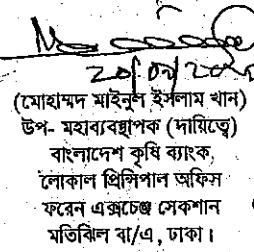 (মোহাম্মদ মাইনুল ইসলাম খান)
উপ- মহাব্যবস্থাপক (দায়িত্বে)
বাংলাদেশ কৃষি ব্যাংক,
লোকাল প্রিন্সিপাল অফিস
ফরেন এক্সচেঞ্জ সেকশান
মতিঝিল বা/এ, ঢাকা।